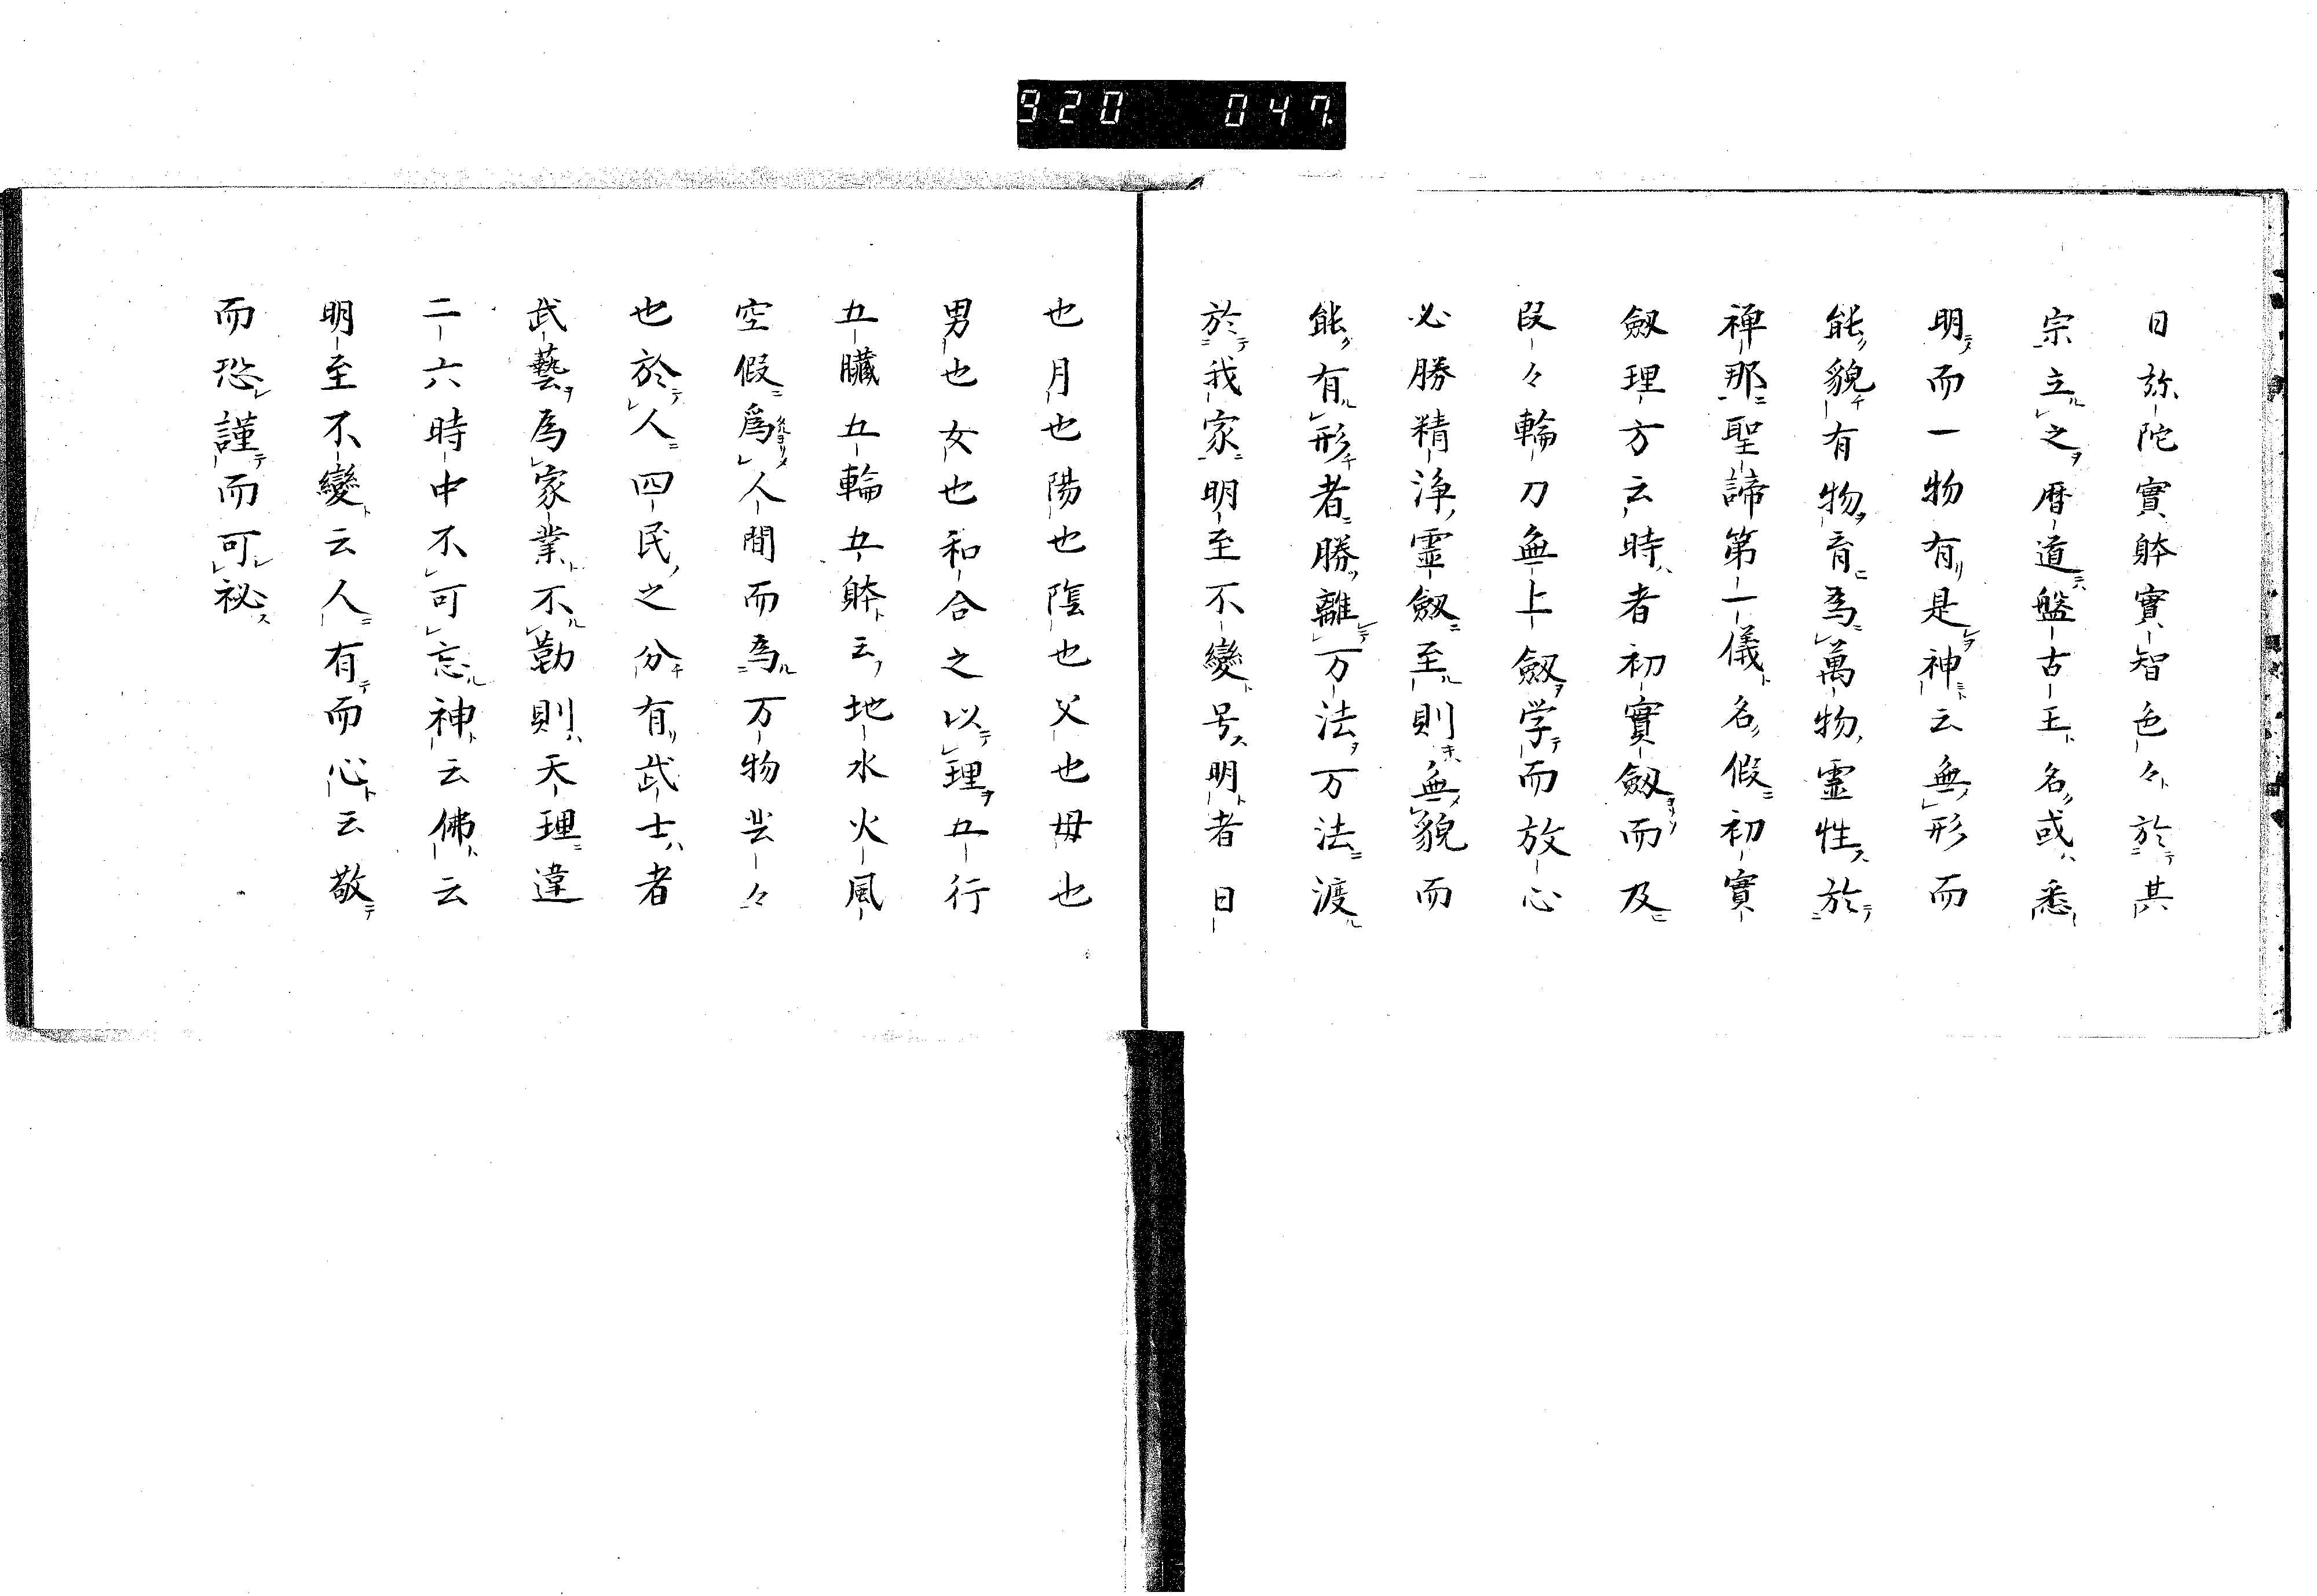 920 047.
日弥陀實躰實智色々於其
宗立之暦道盤古王名或悉
明而一物有是神云無形而
能貌有物育為萬物霊性於
禅那聖諦第一儀名假初實
劔理方云時者初實劔而及
段々輪刀無上劔学而放心
必勝精浄霊劔至則無貌而
能有形者勝離万法万法渡
於我家明至不變号明者日
也月也陽也陰也父也母也
男也女也和合之以理五行
五臓五輪五躰云地水火風
空假為人間而為万物㒵々
也於人四民之分有武士者
武藝為家業不勤則天理違
二六時中不可忘神云佛云
明至不變云人有而心云敬
而恐謹而可祕